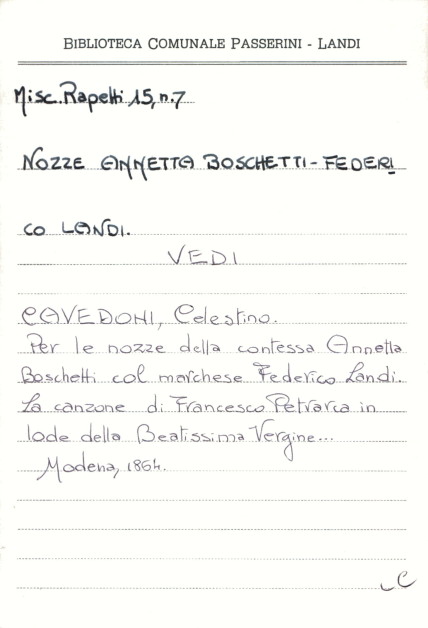 BIBLIOTECA COMUNALE PASSERINI - LANDI
Misc. Rapetti 15, n. 7
NOZZE ANNETTA BOSCHETTI - FEDERI
CO LANDI.
VEDI
CAVEDONI, Celestino.
Per le nozze della contessa Annetta
Boschetti col marchese Federico Landi.
La canzone di Francesco Petrarca in
lode della Beatissima Vergine...
Modena, 1864.